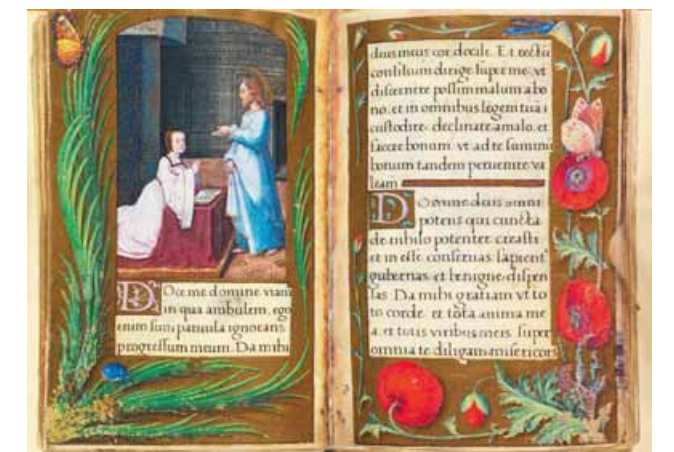 DOce me domine viam
in qua ambulem, ego
enim sum parvula ignorans
progressum meum. Da mihi
deus meus cor docile. Et rectū
consilium dirige super me, vt
discernere possim malum a bo
no, et in omnibus legem tuā
custodire, declinare a malo, et
facere bonum vt ad te summū
bonum tandem peruenire va
leam
DOmine deus omni
potens qui cuncta
de nihilo potenter creasti
et in esse conseruas sapient
gubernas et benigne dispen
sas Da mihi gratiam vt to
to corde et tota anima me
a, et totis viribus meis super
omnia te diligam misericors